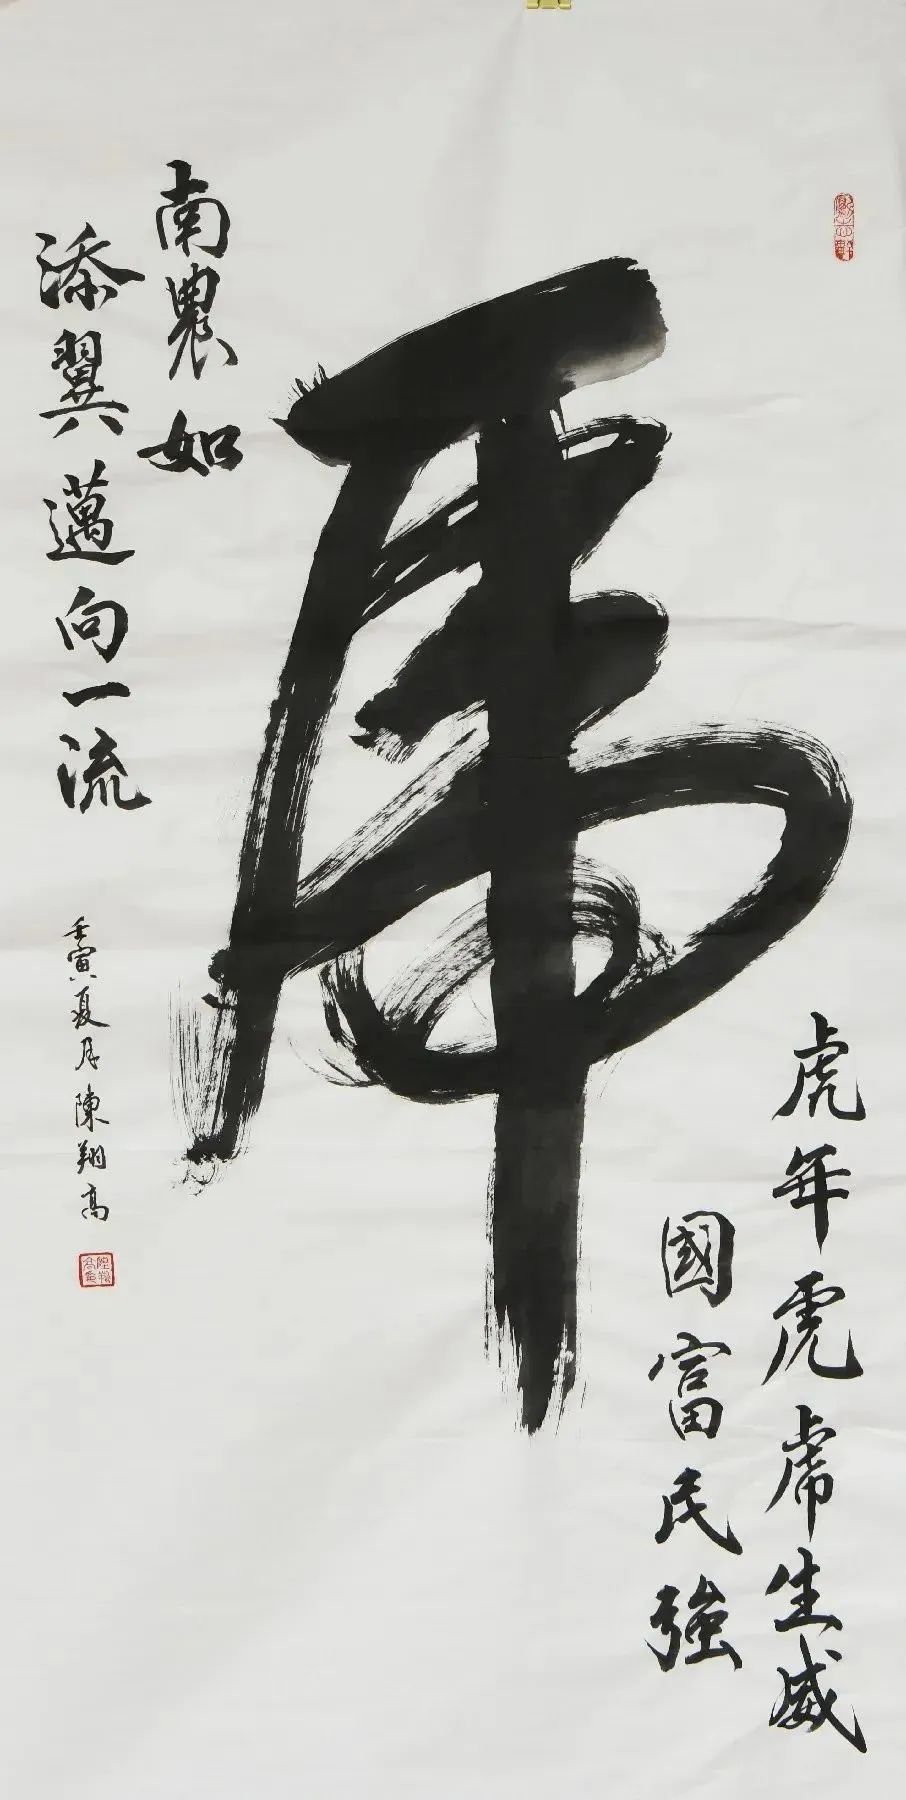 虎年虎虎生威
國富民強
虎
南農如
添翼邁向一流
壬寅夏月陳翔高
陳翔高印